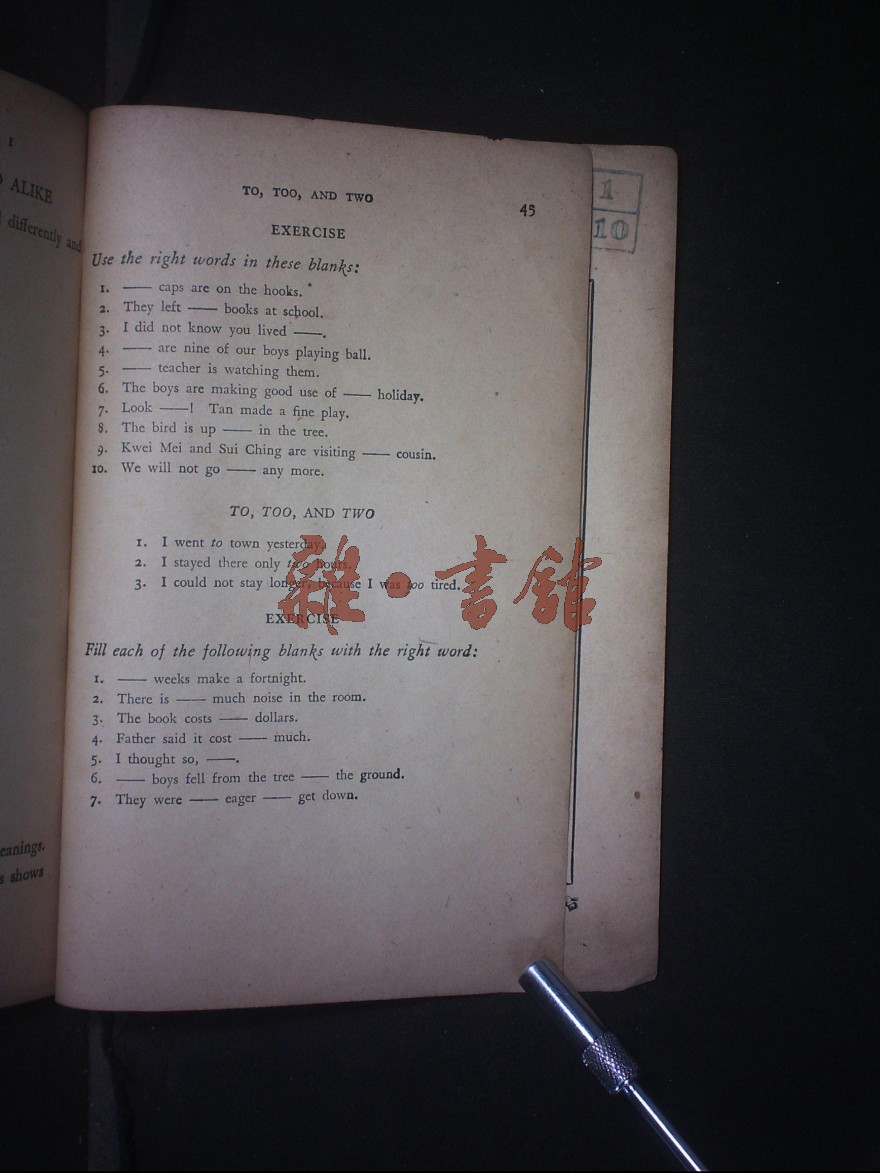 1
ALIKE
differently and
eanings.
s shows
TO, TOO, AND TWO
45
EXERCISE
Use the right words in these blanks:
1. —— caps are on the hooks.
2. They left —— books at school.
3. I did not know you lived ——.
4. —— are nine of our boys playing ball.
5. —— teacher is watching them.
6. The boys are making good use of —— holiday.
7. Look ——! Tan made a fine play.
8. The bird is up —— in the tree.
9. Kwei Mei and Sui Ching are visiting —— cousin.
10. We will not go —— any more.
TO, TOO, AND TWO
1. I went to town yesterday.
2. I stayed there only two hours.
3. I could not stay longer, because I was too tired.
雜·書館
EXERCISE
Fill each of the following blanks with the right word:
1. —— weeks make a fortnight.
2. There is —— much noise in the room.
3. The book costs —— dollars.
4. Father said it cost —— much.
5. I thought so, ——.
6. —— boys fell from the tree —— the ground.
7. They were —— eager —— get down.
1
10